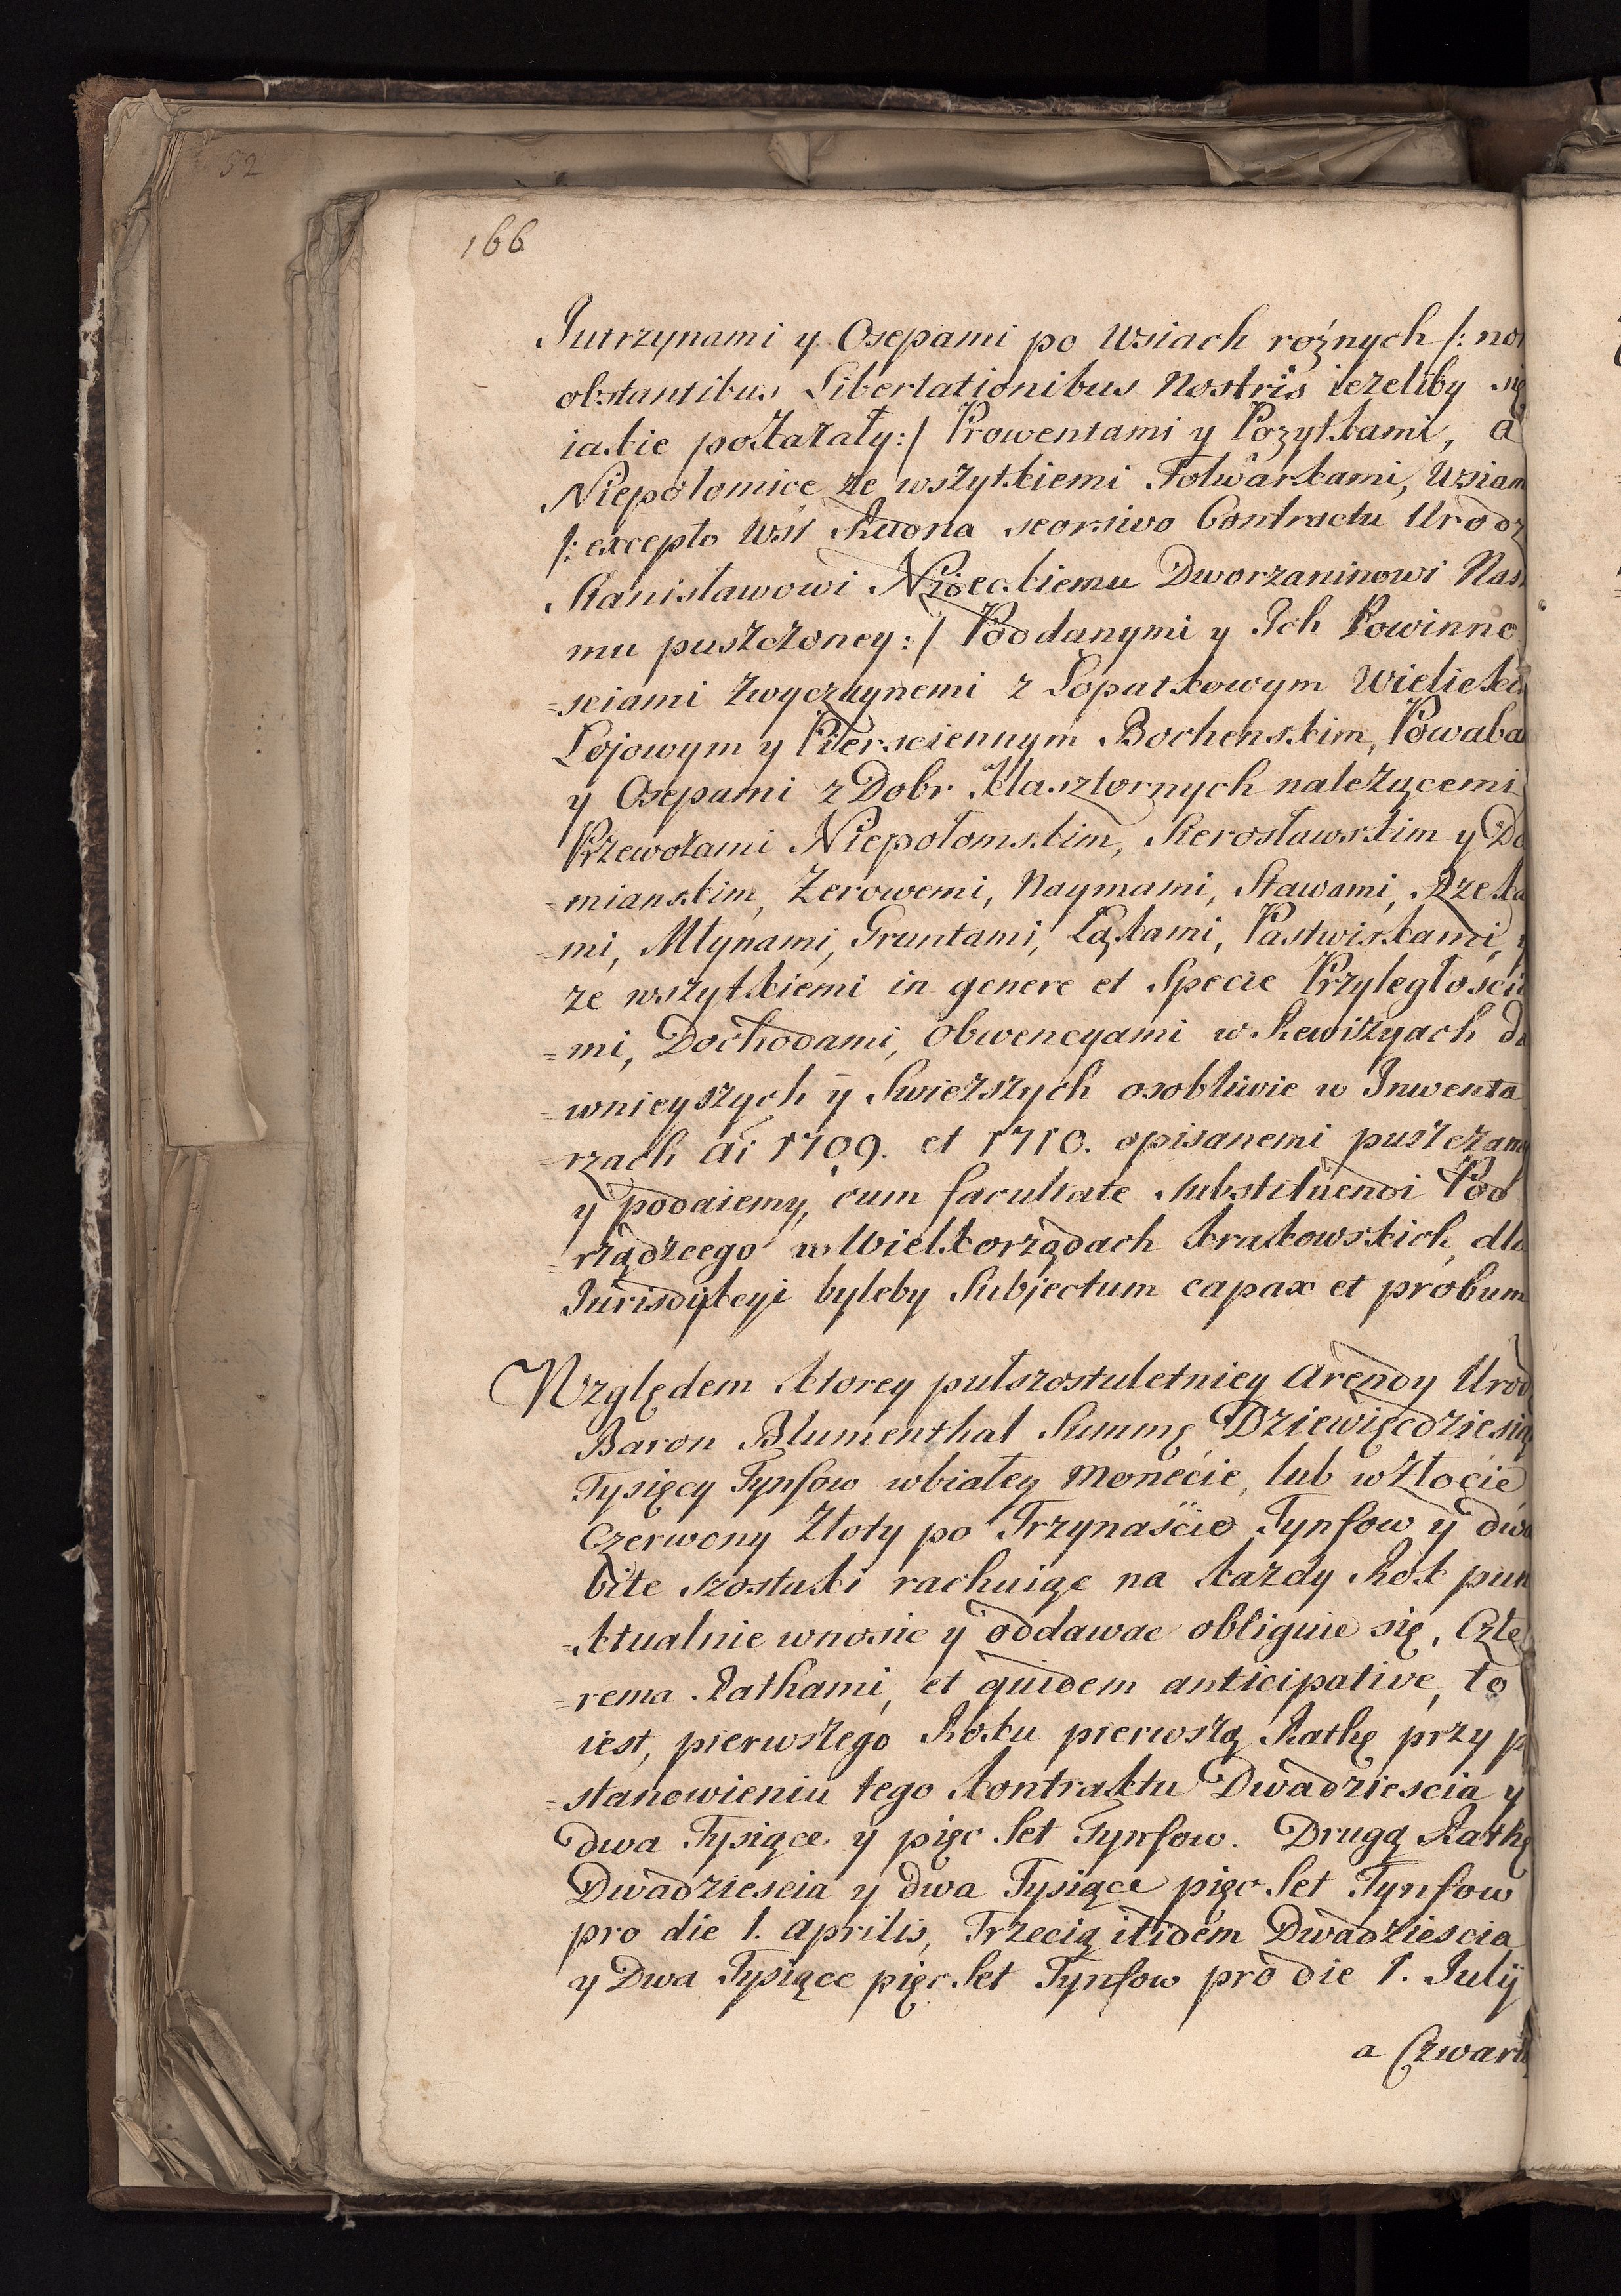 52
166
Jutrzynami y Osepami po Wsiach rożnych /: non
obstantibus Libertationibus Nostris ieżeliby się
iakie pokazały :/ Prowentami y Pożytkami, a
Niepołomice ze wszytkiemi Folwarkami, Wsiam
/: excepto Wsi Rudna seorsivo Contractu Urodz
Stanisławowi Dworzaninowi Nasz
mu puszczoney :/ Poddanymi y Ich Powinno
=sciami zwyczaynemi z Łopatkowym Wielick
Łojowym y Piersciennym Bochenskim, Powaba
y Osepami z Dobr Klasztornych należącemi
Przewozami Niepołomskim, Sierosławskim y Da
=mianskim, Żerowemi, Naymami, Stawami, Rzeka
=mi, Młynami, Gruntami, Łąkami, Pastwiskami, y
ze wszytkiemi in genere et Specie Przyległoscia
=mi, Dochodami, Obwencyami w Rewizyach da
=wnieyszych ÿ Swieższych osobliwie w Inwenta
=rzach ai 1709. et 1710. opisanemi puszczamy
y podaiemy, cum facultate substituendi Pod
=rządzcego w Wielkorządach krakowskich, dla
Jurisdykcyi byleby Subjectum capax et probum
Względem ktorey pułszostuletniey Arendy Urodz
Baron Blumenthal Summę Dziewięcdziesią
Tysięcy Tynfow w białey Monecie, lub w Złocie
Czerwony Złoty po Trzynaście Tynfow ÿ dwa
bite szostaki rachuiąc na każdy Rok pun
=ktualnie wnosic ÿ oddawac obliguie się, Czte
=rema Rathami, et quidem anticipative, to
iest, pierwszego Roku pierwszą Rathę przy p
=stanowieniu tego kontraktu Dwadziescia y
dwa Tysiące y pięc Set Tynfow. Drugą Rathę
Dwadziescia y dwa Tysiące pięc Set Tynfow
pro die 1. Aprilis, Trzecią itidem Dwadziescia
y Dwa Tysiące pięc Set Tynfow pro die 1. Julÿ
a Czwartą